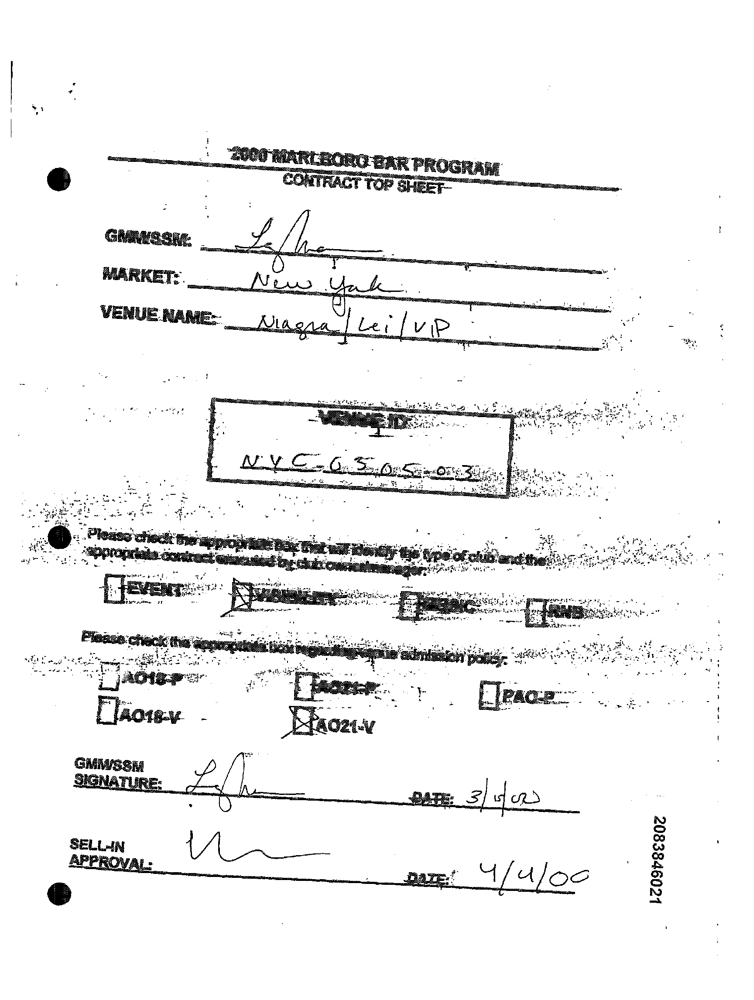 2000 MARLBORO BAR PROGRAM
CONTRACT TOP SHEET
GMM/SSM:
MARKET: New York
VENUE NAME: Niagra / Lei / VIP
VENUE ID
NYC-03505-03
Please check the appropriate box that will identify the type of club and the
appropriate contract executed by club owner/manager:
EVENT VISIBILITY MUSIC RNB
Please check the appropriate box regarding venue admission policy:
AO18-P AO21-P PAO-P
AO18-V AO21-V
GMM/SSM
SIGNATURE: DATE:
SELL-IN
APPROVAL: DATE: 4/4/00
2083846021